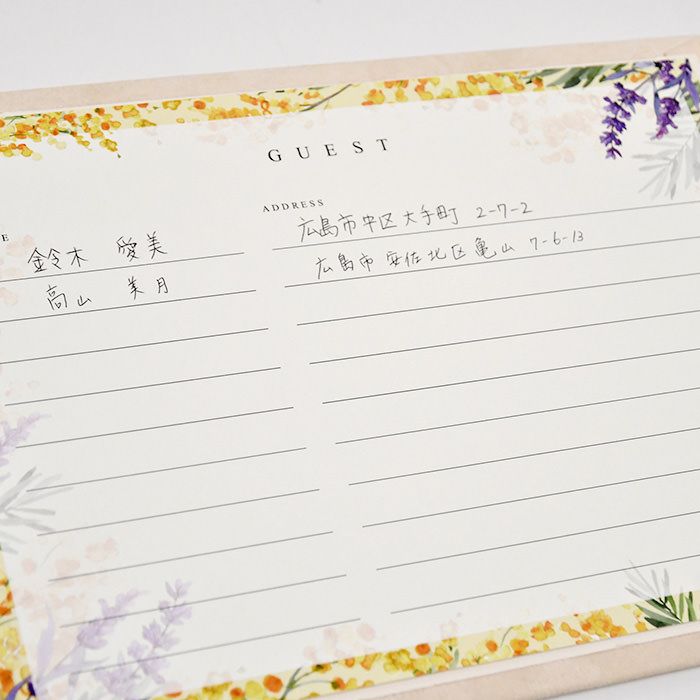 GUEST
E
ADDRESS
鈴木 愛美
広島市中区大手町 2-7-2
高山 美月
広島市安佐北区亀山 7-6-13